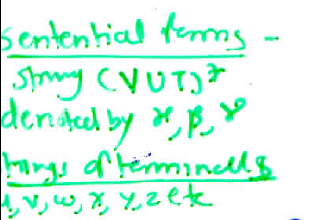 sentential forms -
string (VUT)*
denoted by α, β, γ
trings of terminalls
u, v, w, x, y, z etc